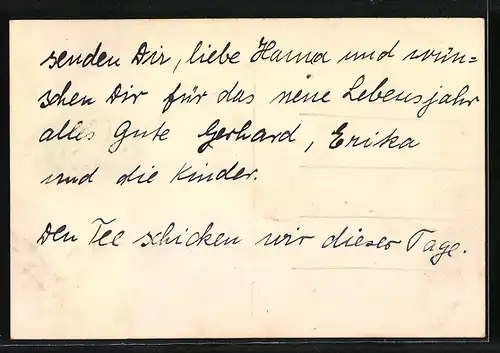 senden Dir, liebe Hanna und wün=
schen Dir für das neue Lebensjahr
alles Gute Gerhard, Erika
und die Kinder.
Den Tee schicken wir dieser Tage.